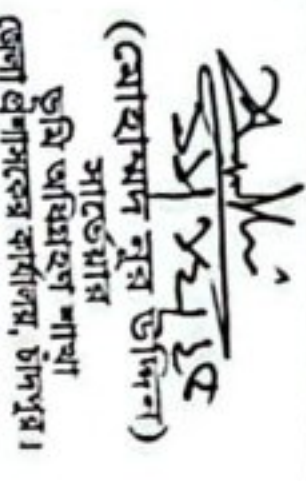 (মোহাম্মদ নূরন উদ্দিন)
সার্ভেয়ার
ভূমি অধিগ্রহণ শাখা
জেলা প্রশাসকের কার্যালয়, চাঁদপুর।